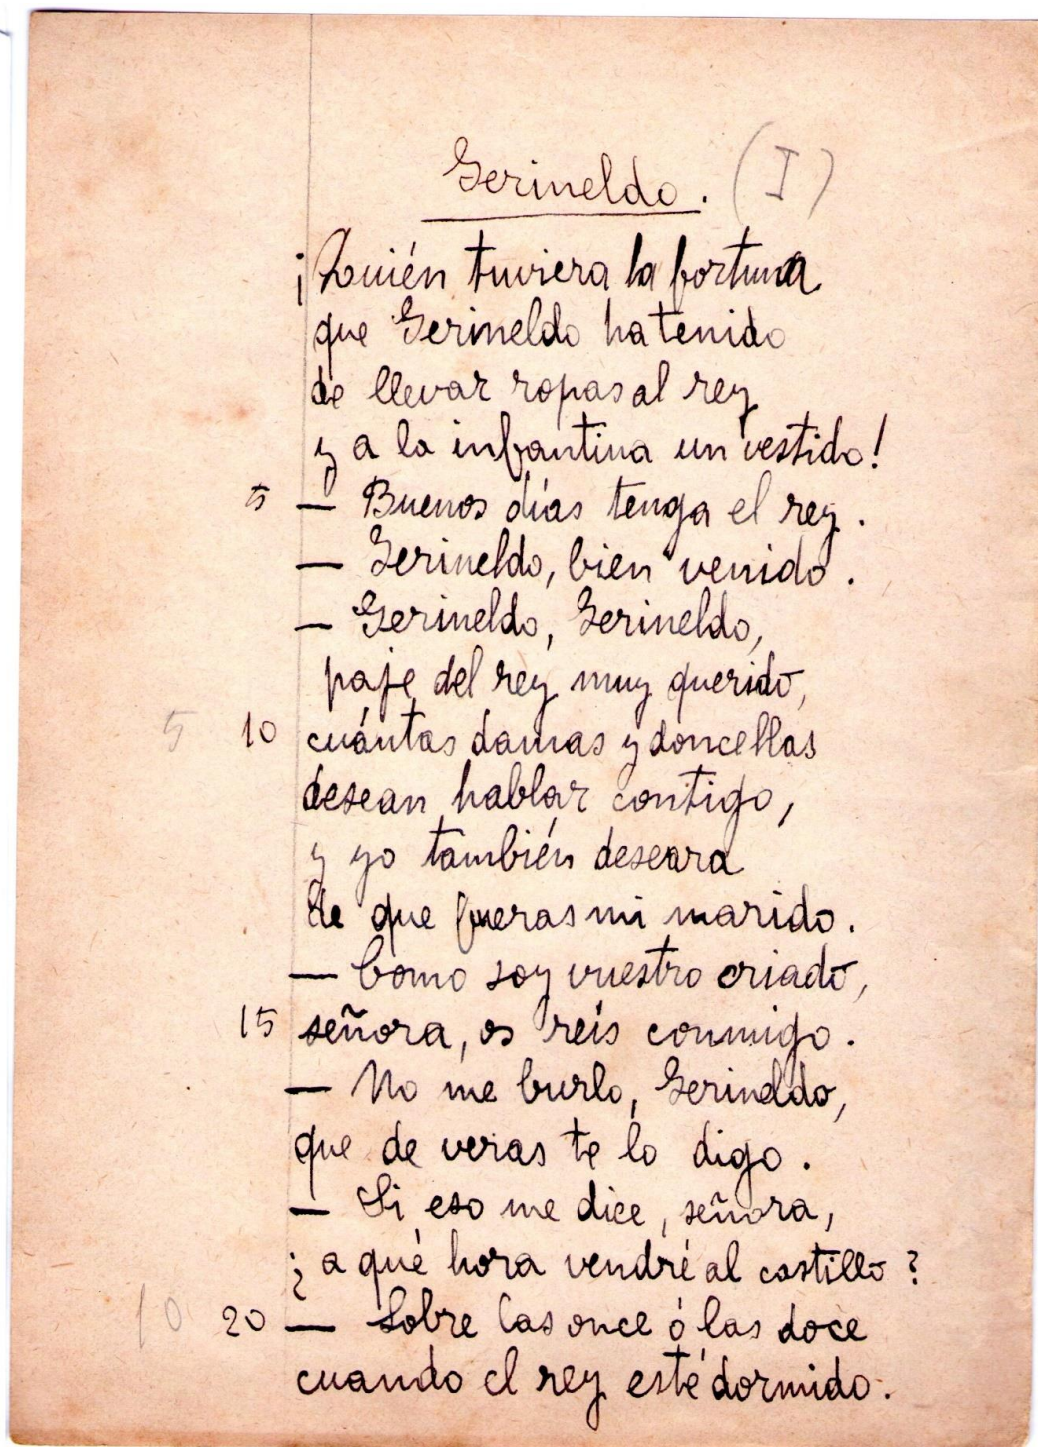 Gerineldo. (I)
¡Quién tuviera la fortuna
que Gerineldo ha tenido
de llevar ropas al rey
y a la infantina un vestido!
5 — Buenos días tenga el rey.
— Gerineldo, bien venido.
— Gerineldo, Gerineldo,
paje del rey muy querido,
5 10 cuántas damas y doncellas
desean hablar contigo,
y yo también deseara
de que fueras mi marido.
— Como soy vuestro criado,
15 señora, os reís conmigo.
— No me burlo, Gerineldo,
que de veras te lo digo.
— Si eso me dice, señora,
¿a qué hora vendré al castillo?
10 20 — Sobre las once ó las doce
cuando el rey esté dormido.